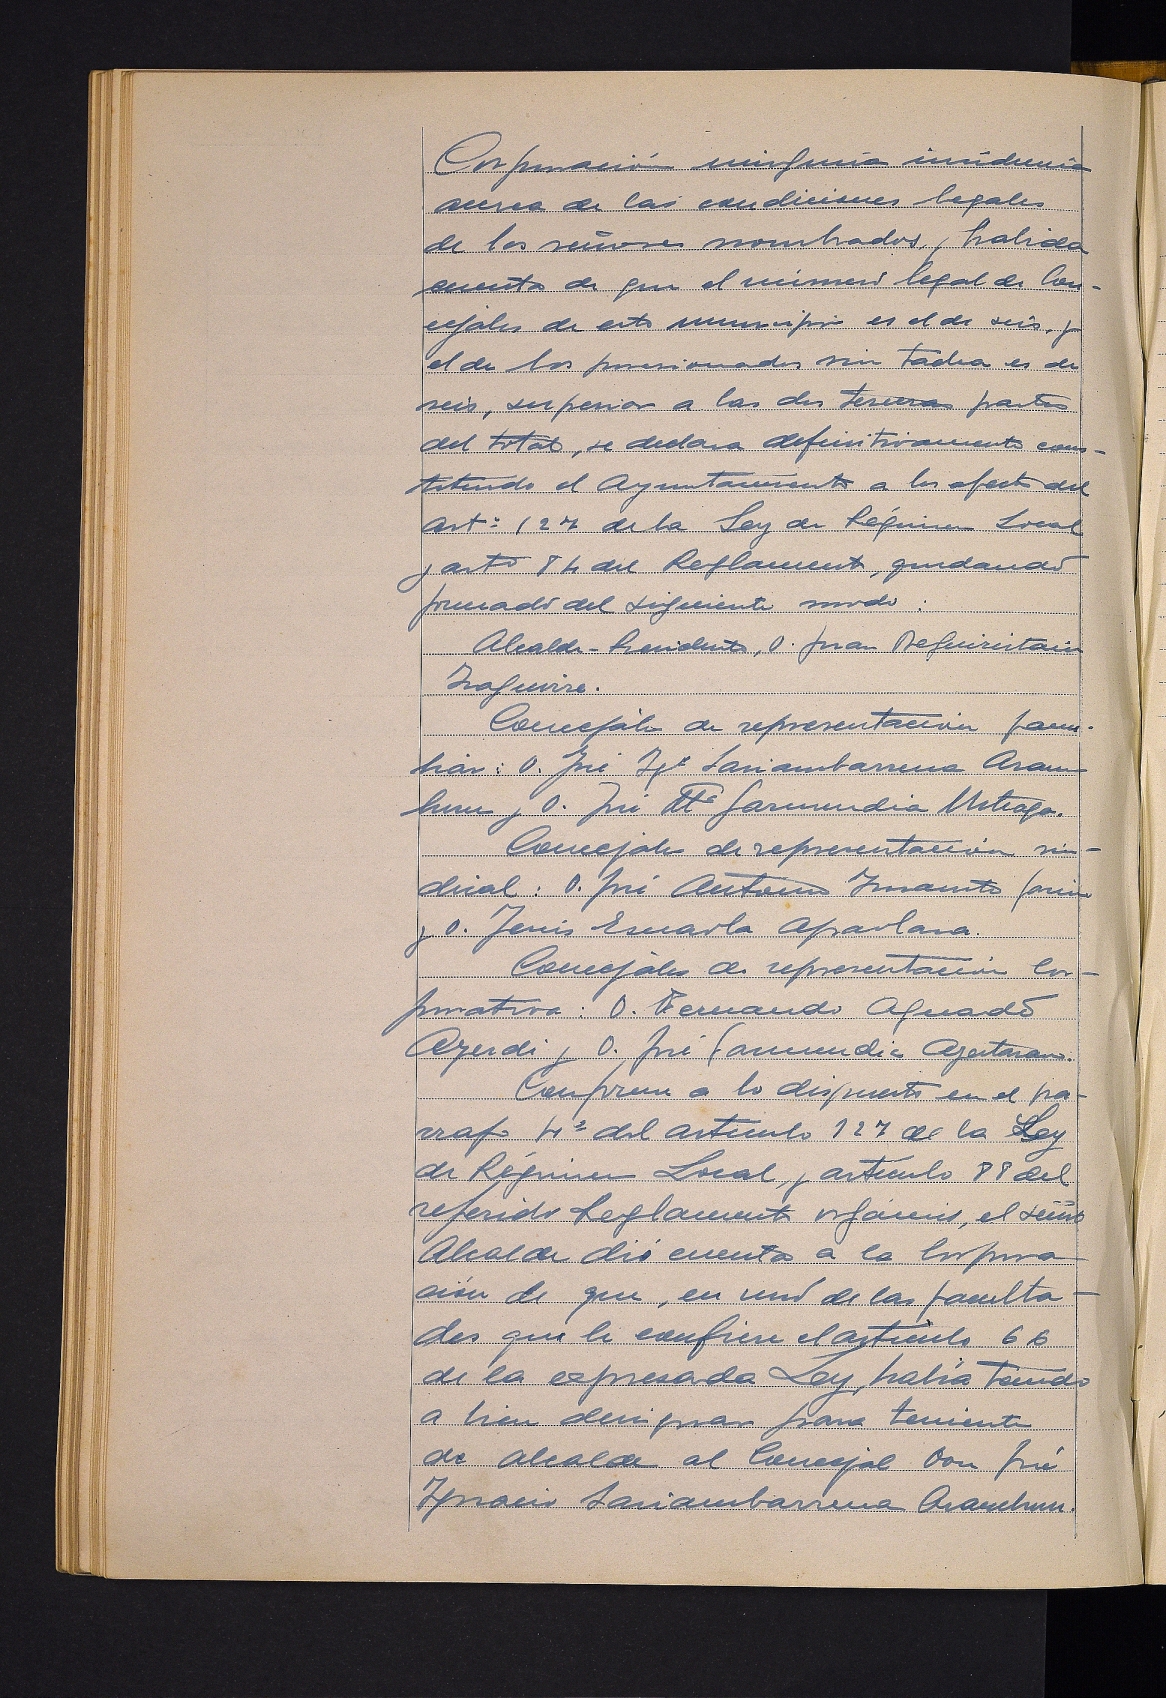 Corporación ninguna incidencia
acerca de las condiciones legales
de los señores nombrados, y habida
cuenta de que el número legal de Con-
cejales de este municipio es el de seis, y
el de los posesionados sin tacha es de
seis, superior a las dos terceras partes
del total, se declara definitivamente cons-
tituido el Ayuntamiento a los efectos del
artº 127 de la Ley de Régimen Local
y artº 84 del Reglamento, quedando
formado del siguiente modo:
Alcalde-Presidente, D. Juan Beguiristain
Izaguirre.
Concejales de representación fami-
liar: D. José Igº Lasiambarrena Aram-
buru y D. José Mª Garmendia
Concejales de representación sin-
dical: D. José Antonio
y D. Jesús Esnaola Apaolaza.
Concejales de representación Cor-
porativa: D. Fernando Aguado
Azerdi y D. José Garmendia
Conforme a lo dispuesto en el pá-
rrafo 4º del artículo 127 de la Ley
de Régimen Local, y artículo 88 del
referido Reglamento orgánico, el señor
Alcalde dió cuenta a la Corpora-
ción de que, en uso de las faculta-
des que le confiere el artículo 66
de la expresada Ley, había tenido
a bien designar para teniente
de alcalde al Concejal Don José
Ignacio Lasiambarrena Aramburu.